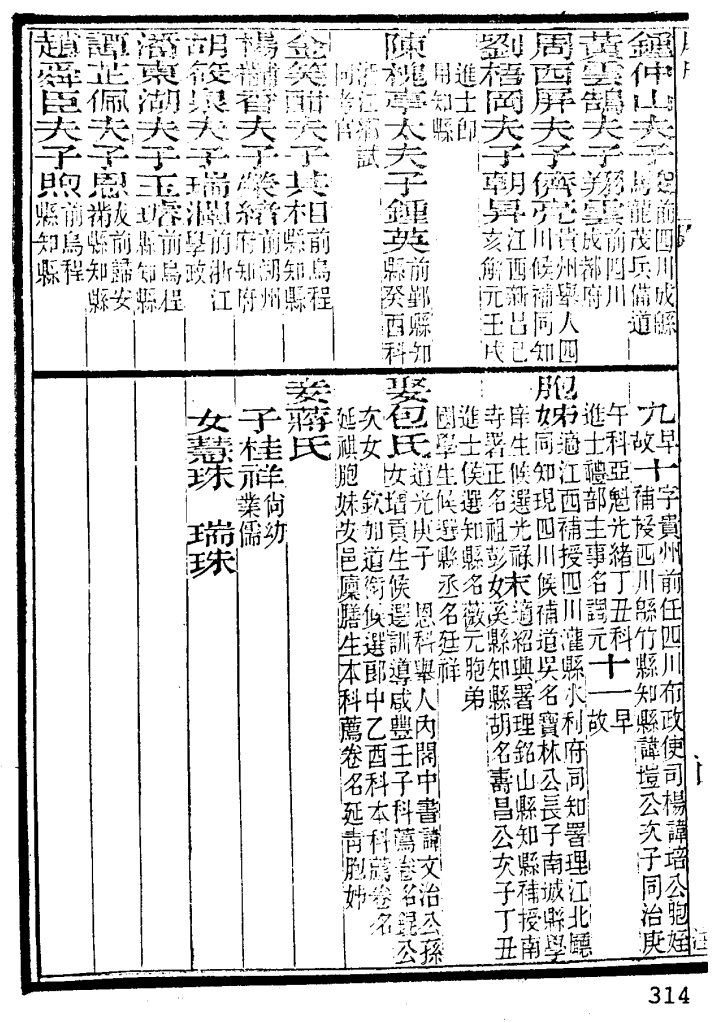 鍾仲山夫子
前四川成縣
龍茂兵備道
黃雲鵠夫子翔雲
前四川
成都府
周西屏夫子儕亮
貴州舉人四
川候補同知
劉梧岡夫子朝昇
江西新昌己
亥解元壬戌
進士即
用知縣
陳槐亭太夫子鍾英
前鄞縣知
縣癸酉科
浙江鄉試
同考官
金笑酣夫子其相
前烏程
縣知縣
楊補香夫子榮緒
前湖州
府知府
胡筱泉夫子瑞瀾
前浙江
學政
潘東湖夫子玉璿
前烏程
縣知縣
譚芷佩夫子恩黻
前歸安
縣知縣
趙舜臣夫子煦
前烏程
縣知縣
九早故十字貴州前任四川布政使司楊諱培公胞姪
補授四川緜竹縣知縣諱塏公次子同治庚
午科亞魁光緒丁丑科
進士禮部主事名諤元十一早故
胞姊適江西補授四川灌縣水利府同知署理江北廳
同知現四川候補道吳名寶林公長子南城縣學
庠生候選光祿寺署正名祖彭
末適紹興署理銘山縣知縣補授南
溪縣知縣胡名壽昌公次子丁丑
進士候選知縣名薇元胞弟
國學生候選縣丞名廷祥
娶包氏
道光庚子 恩科舉人內閣中書諱文治公孫
女增貢生候選訓導咸豐壬子科薦卷名錕公
次女 欽加道銜候選郎中乙酉科本科薦卷名
延祺胞妹安邑廩膳生本科薦卷名延青胞姊
妾蔣氏
子桂祥
尚幼
業儒
女慧珠 瑞珠
314